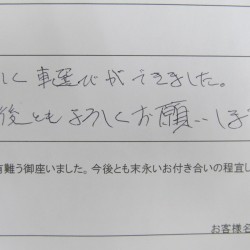 しく車選びができました。
後ともよろしくお願いしま
有難う御座いました。今後とも末永いお付き合いの程宜し
お客様名